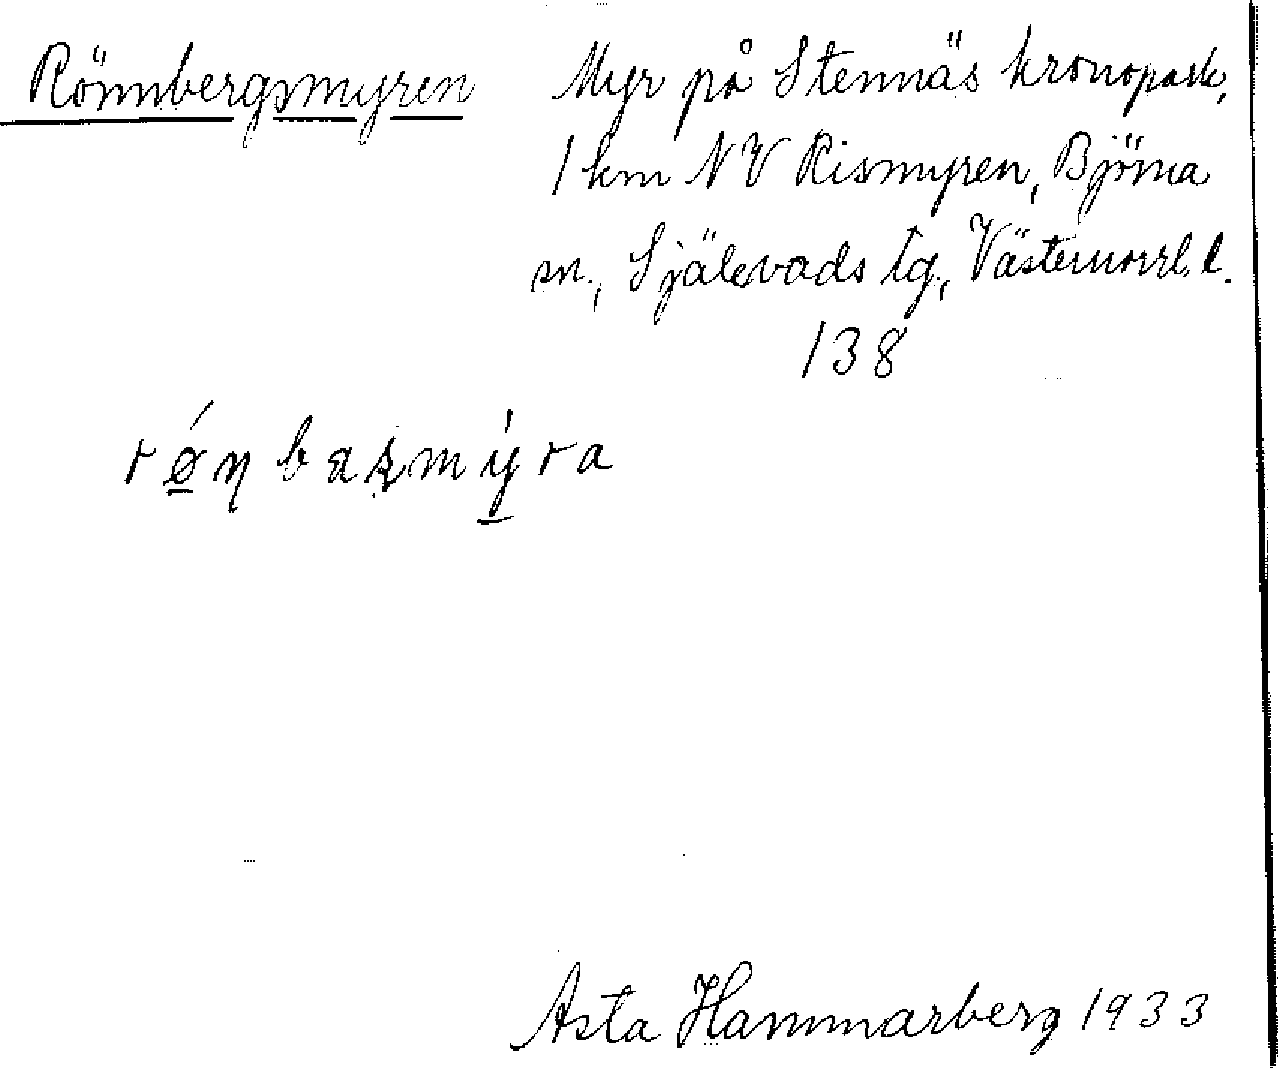 Rönnbergsmyren
Myr på Stennäs kronopark,
1 km NV Rismyren, Björna
sn., Själevads tg., Västernorrl. l.
138
rǿ̲ŋbaʂmý̲ra
Asta Hammarberg 1933